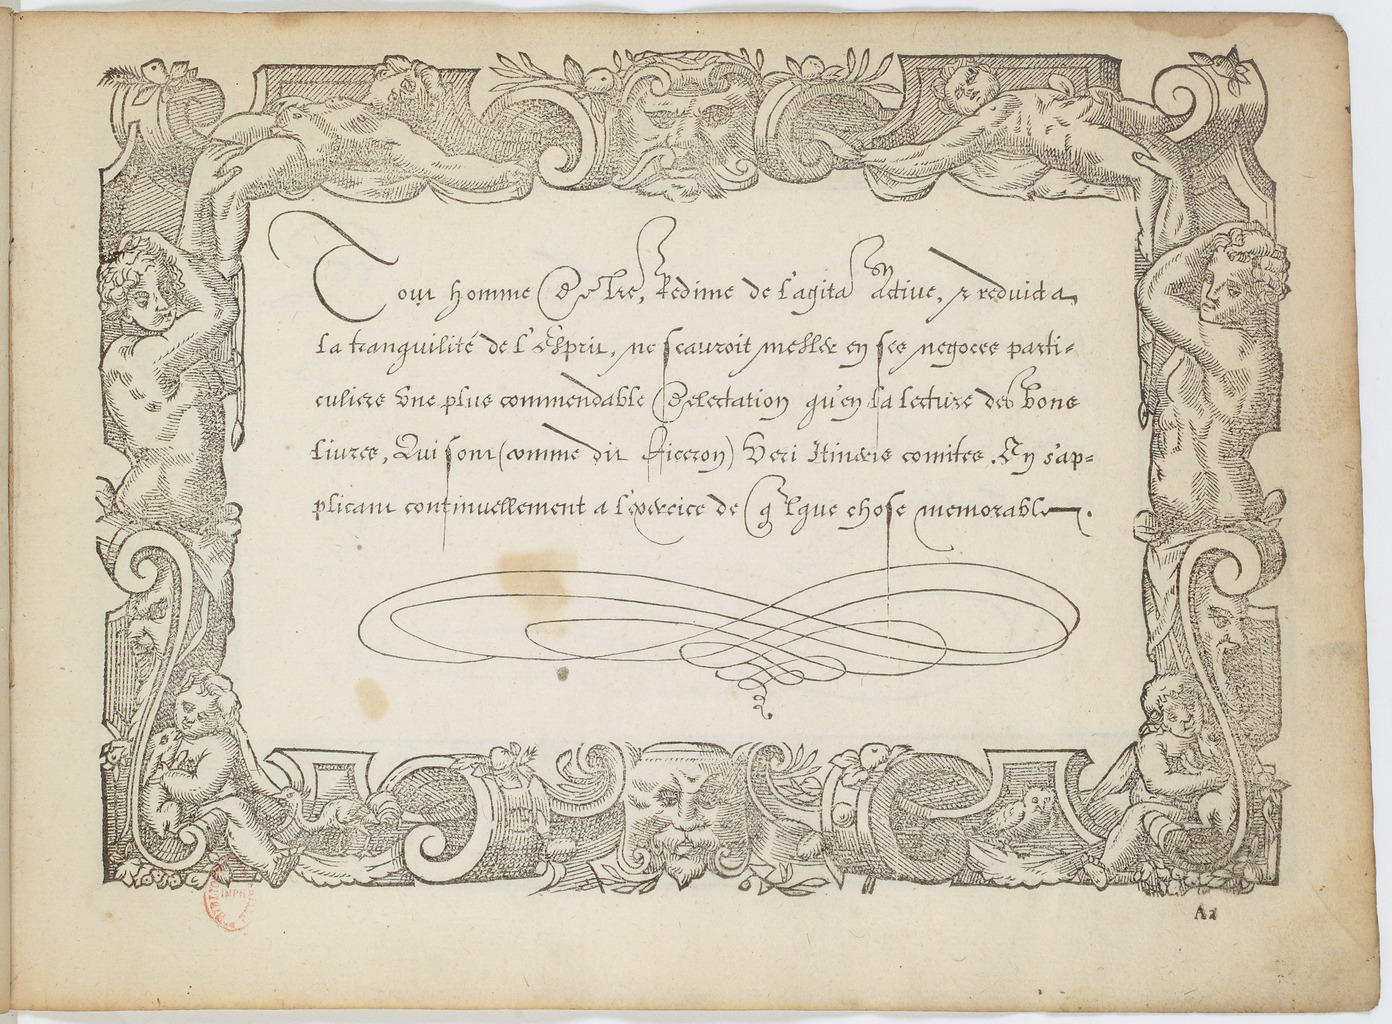 Tout homme de lre, Redimé de l'agita͠o͠n̄ active, & reduict a
la tranquilité de l'Esprit, ne scauroit mesler en ses negoces parti-
culiers Une plus commendable Delectation qu'en la lecture des bons
livres, Qui sont (comme dit Ciceron) Veri Itineris comites. En s'ap-
plicant continuellement a l'exercice de qlque chose memorable.
A2